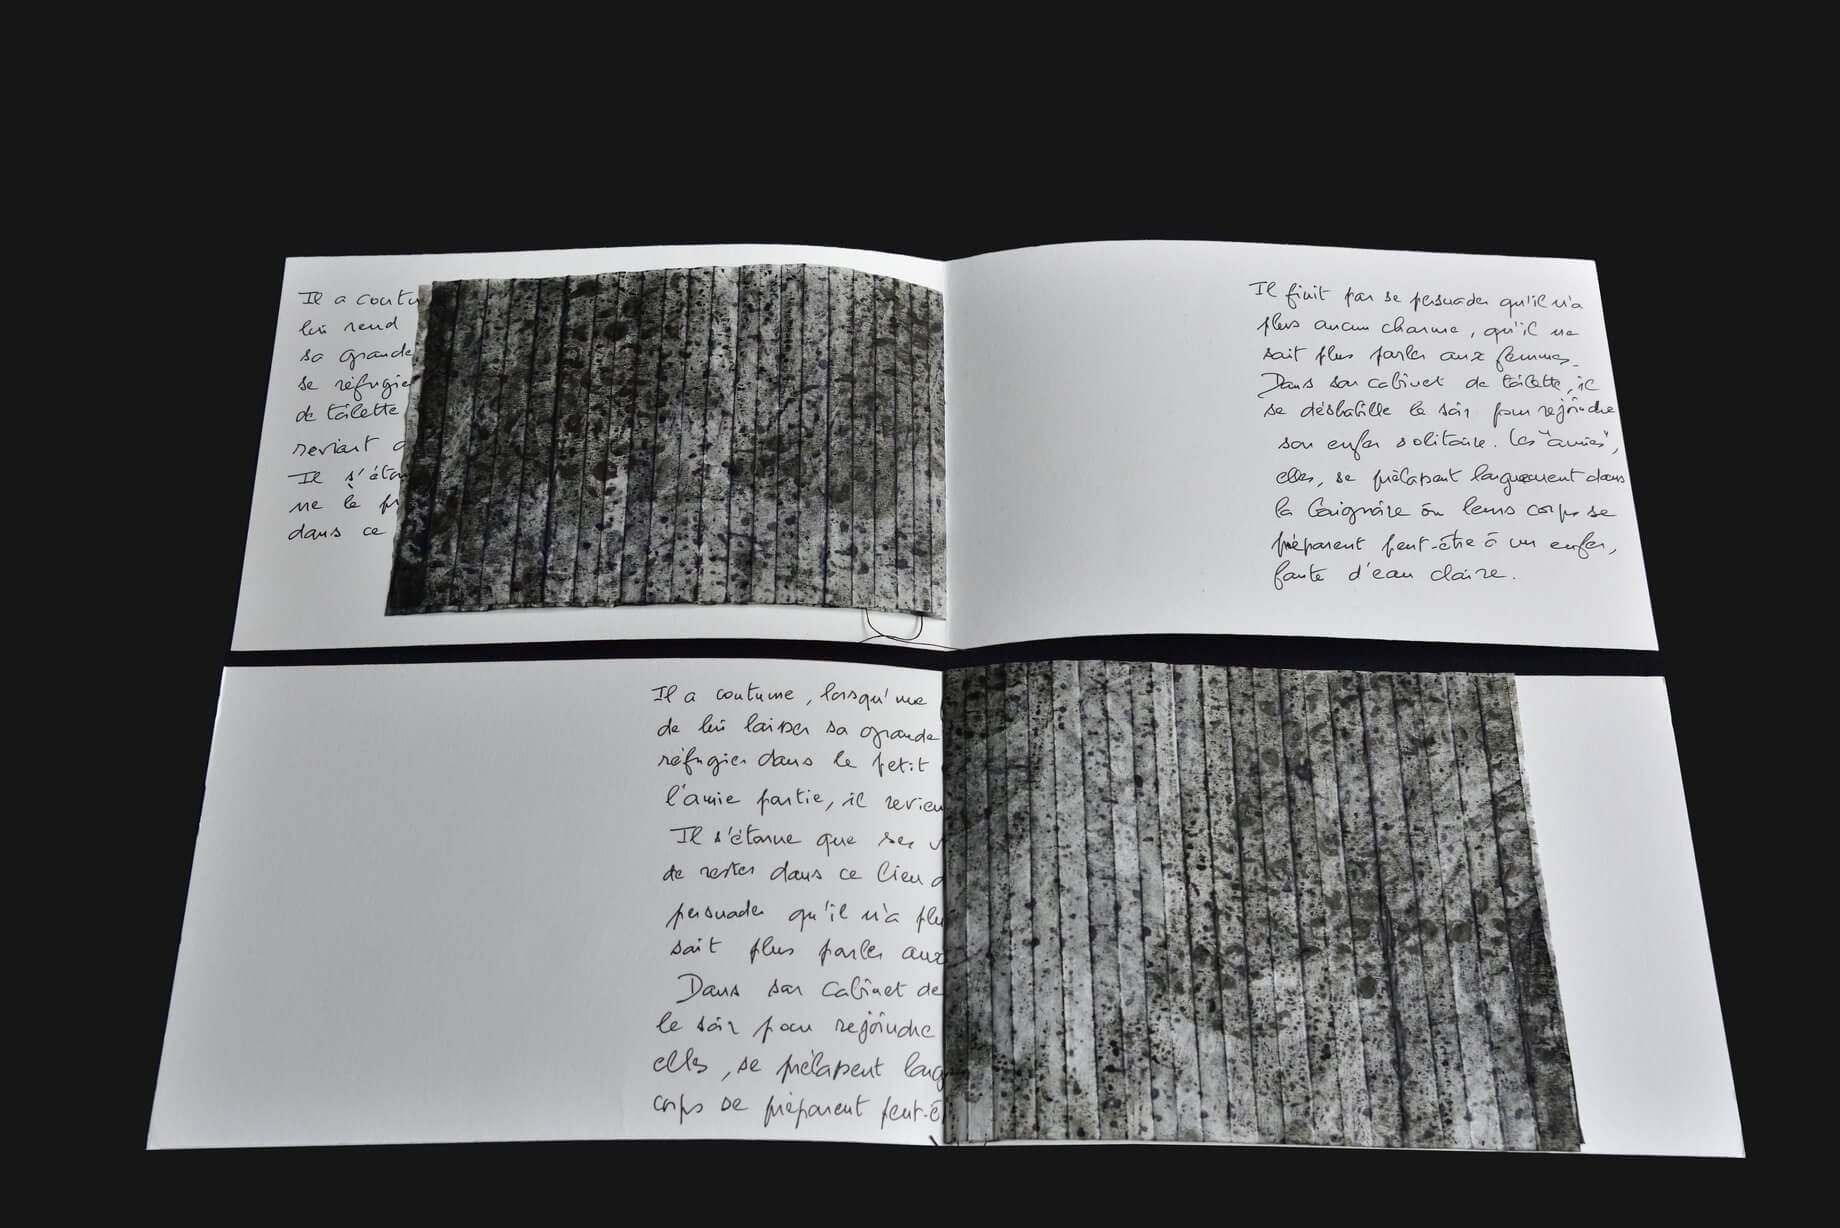 Il a coutu
lui rend
sa grande
se réfugie
de toilette
revient d
Il s'éton
ne le pr
dans ce
Il finit par se persuader qu'il n'a
plus aucun charme, qu'il ne
sait plus parler aux femmes.
Dans son cabinet de toilette, il
se déshabille le soir pour rejoindre
son enfer solitaire. Les "amies",
elles, se prélassent longuement dans
la baignoire où leurs corps se
préparent peut-être à un enfer,
faute d'eau claire.
Il a coutume, lorsqu'une
de lui laisser sa grande
réfugier dans le petit
l'amie partie, il revien
Il s'étonne que ses v
de rester dans ce lieu d
persuader qu'il n'a plu
sait plus parler aux
Dans son cabinet de
le soir pour rejoindre
elles, se prélassent long
corps se préparent peut-ê